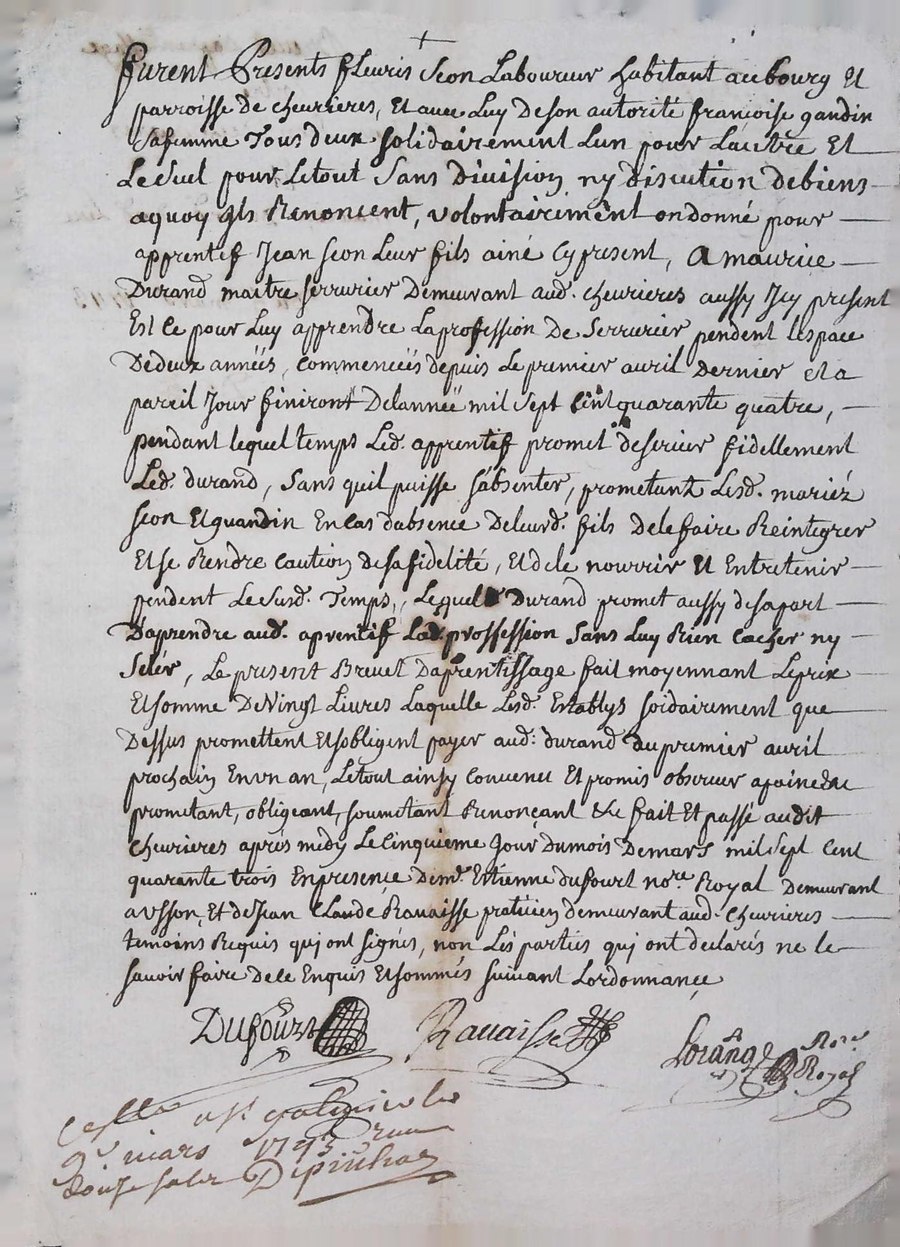 furent Presents fleuris seon Laboureur habitant au bourg Et
parroisse de cheurieres, Et auec Luy De son autorité françoise gandin
sa femme Tous deux solidairement Lun pour Lautre Et
Le seul pour Le tout sans Division ny discution de biens
a quoy Ils Renoncent, volontairement on donné pour
apprentif Jean seon Leur fils ainé Cy present, A maurice
Durand maitre serrurier Demeurant aud. cheurieres aussy Icy present
Est Ce pour Luy apprendre La profession De serrurier pendent Lespace
De deux annéës, commencéës depuis Le premier auril Dernier et a
pareil Jour finiront De Lannéë mil sept Cent quarante quatre,
pendant lequel temps Led. apprentif promet de seruir fidellement
Led. durand, sans quil puisse sabsenter, prometant Lesd. mariéz
seon Et guandin En cas dabsence De leurd. fils de le faire Reintegrer
Et se Rendre caution de sa fidelité, Et de le nourrir Et Entretenir
pendent Le susd. Temps, Lequel Durand promet aussy de sa part
Daprendre aud. aprentif Lad. proffession sans Luy Rien cacher ny
seler, Le present Breuet Daprentissage fait moyennant Le prix
Et somme De Vingt Liures Laquelle Lesd. Establys soidairement que
Dessus promettent Et sobligent payer aud: durand du premier auril
prochain En vn an, Le tout ainsy conuenu Et promis obseruer a paine de
prometant, obligeant, soumetant Renonçant &c fait Et passé audit
Cheurieres après midy Le Cinquième Jour du mois De mars mil sept Cent
quarante trois En presence De me. Etienne dufourt nore. Royal Demeurant
a vsson, Et de Jean Claude Rauaisse praticien demeurant aud. cheurieres
temoins Requis qui ont signés, non Les parties qui ont declarés ne le
sauoir faire de ce Enquis Et sommés suiuant Lordonnance
Dufourt Rauaisse
Lorange Nore.
Royal
a st galmier le
9e mars 1743
douze sols